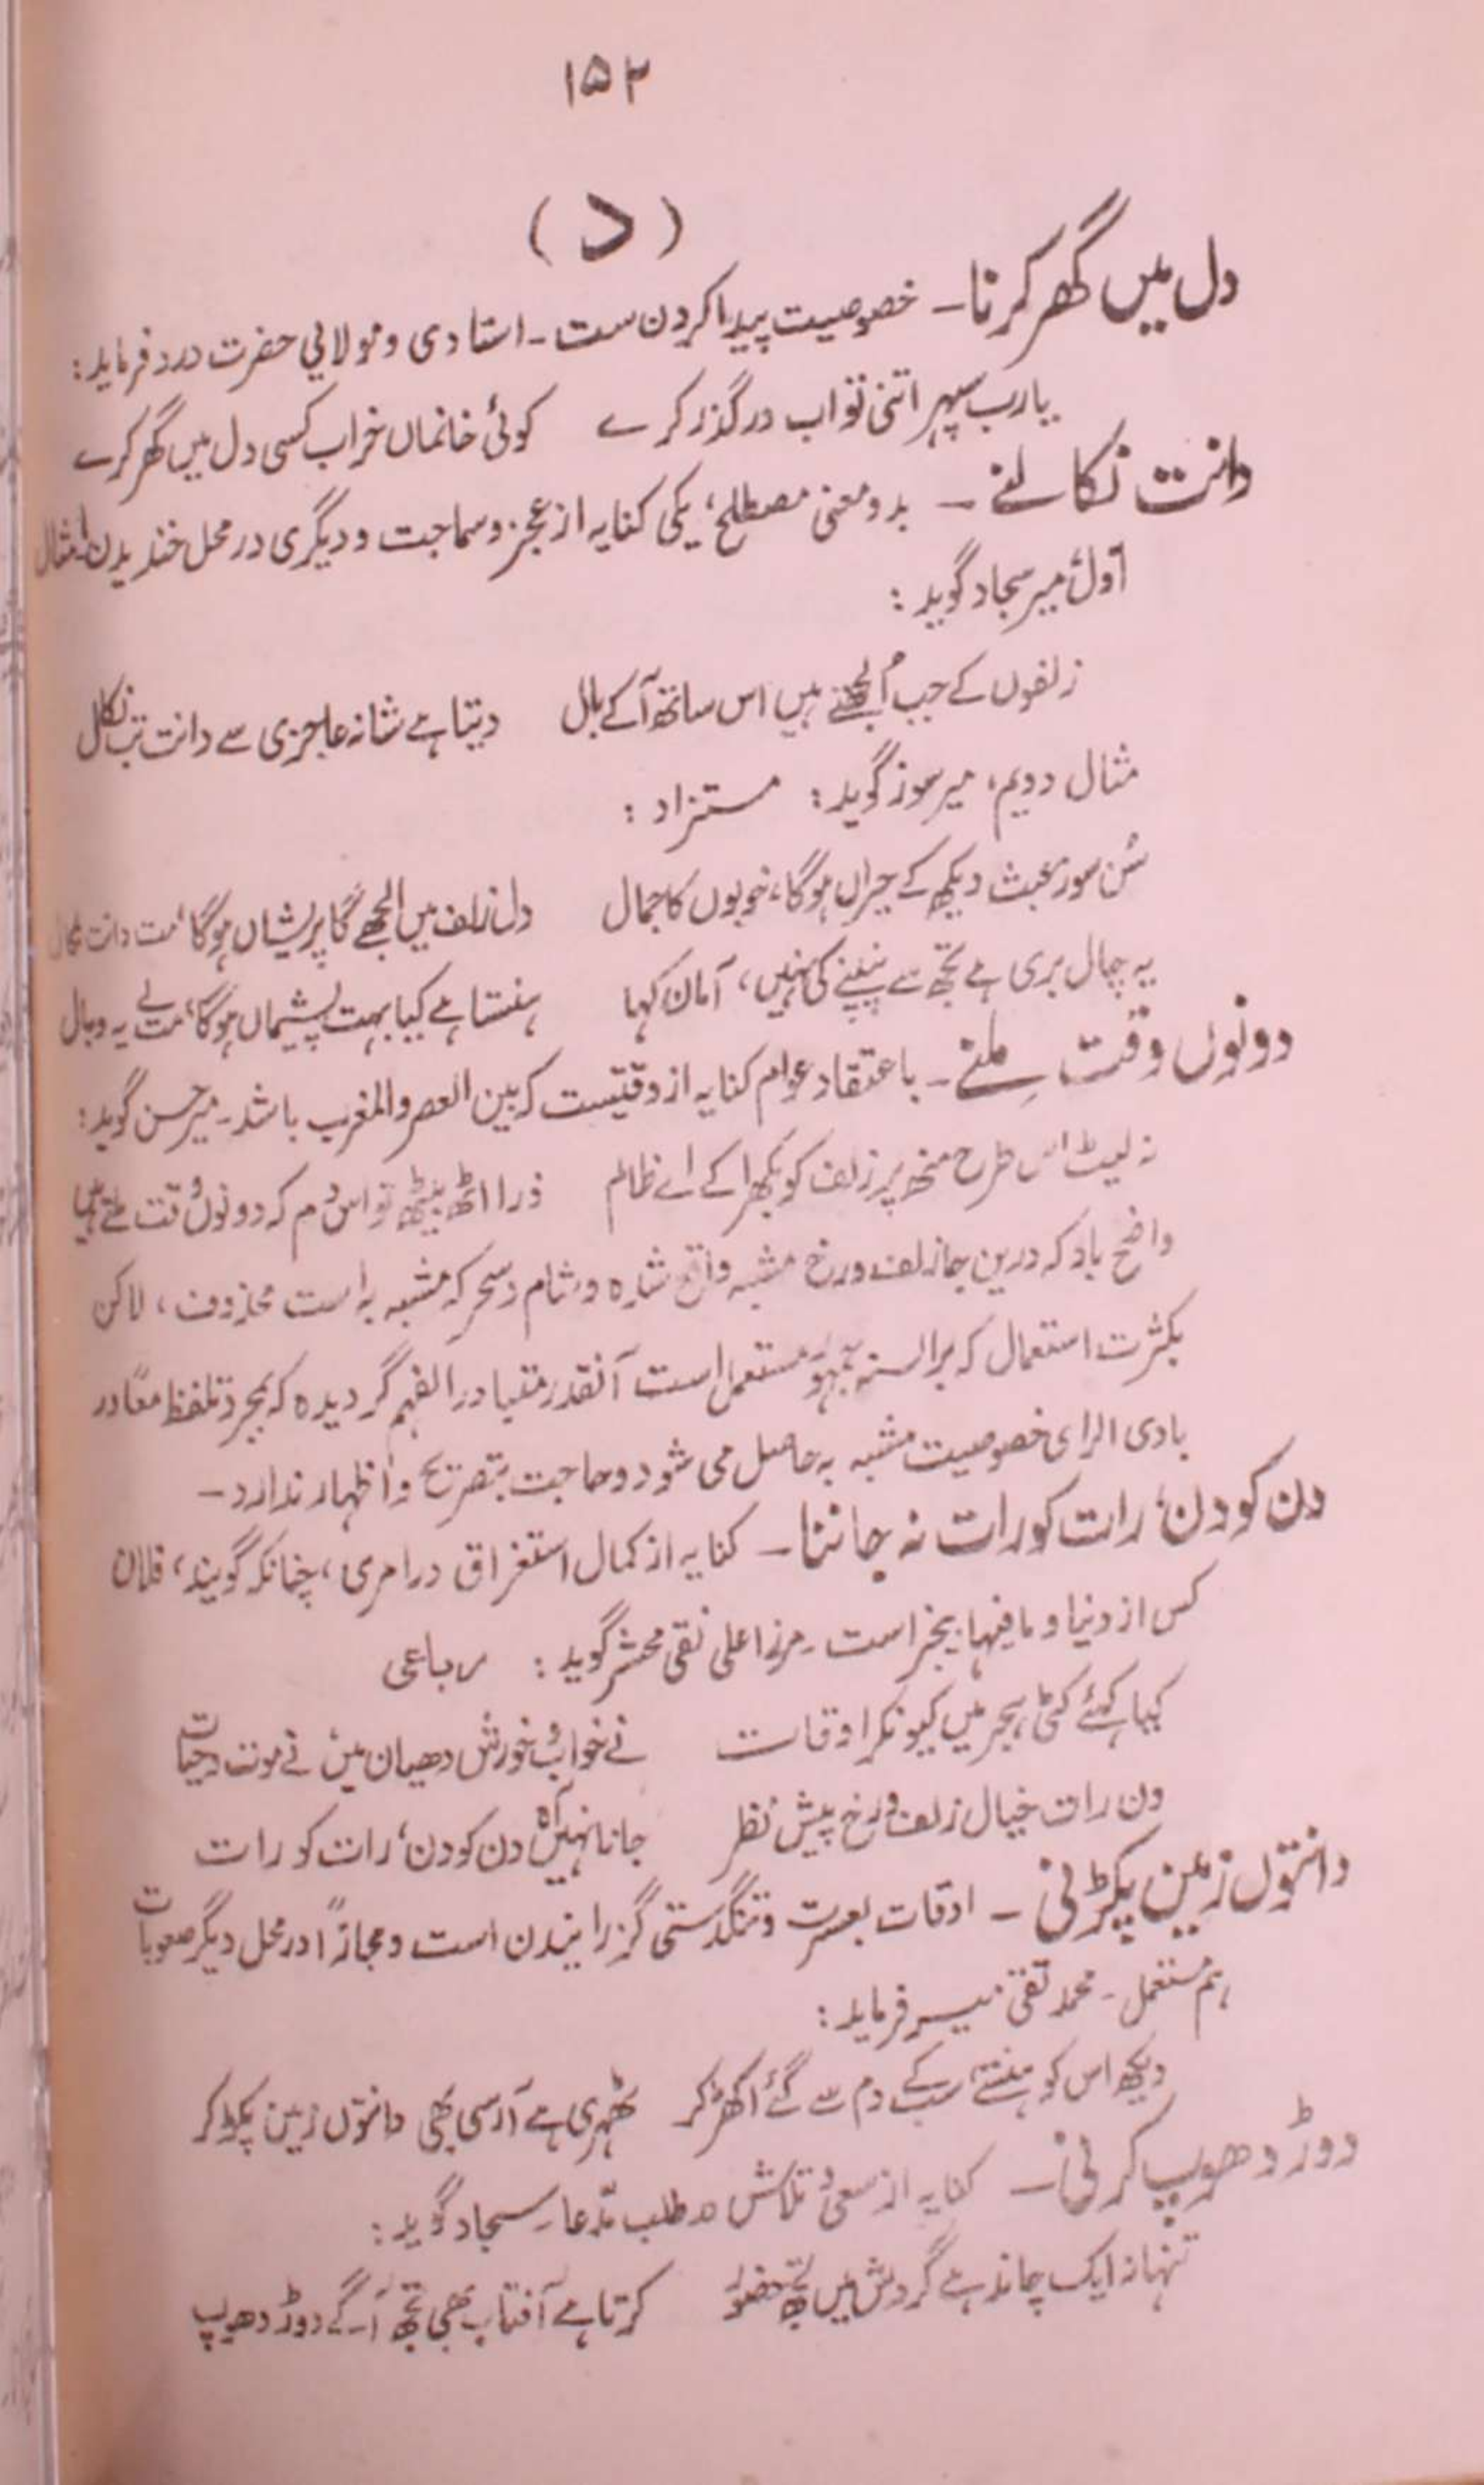 ۱۵۲
(د)
دل میں گھر کرنا۔ خصوصیت پیدا کردن ست۔ استادی و مولائی حضرت درد فرماید:
یارب سپہر اتنی تو اب درگذر کرے کوئی خانماں خراب کسی دل میں گھر کرے
دانت نکالنے ۔ بدو معنی مصطلح، یکی کنایہ از عجز و سماجت و دیگری در محل خندیدن۔ مثال
اول میر سجاد گوید:
زلفوں کے جب اُلجھتے ہیں اس ساتھ آ کے بال دیتا ہے شانہ عاجزی سے دانت تب نکال
مثال دویم، میر سوز گوید: مستزاد:
سُن سوز عبث دیکھ کے حیراں ہوگا، خوبوں کا جمال دل زلف میں الجھے گا پریشاں ہوگا، مت دانت نکال
یہ چال بری ہے تجھ سے نبھنے کی نہیں، آ مان کہا ہنستا ہے کیا بہت پشیماں ہوگا، مت لے یہ وبال
دونوں وقت مِلنے۔ باعتقاد عوام کنایہ از وقتیست کہ بین العصر والمغرب باشد۔ میر حسن گوید:
نہ لیٹ اس طرح منھ پر زلف کو بکھرا کے اے ظالم ذرا اٹھ بیٹھ تو اس دم کہ دونوں وقت ملتے ہیں
واضح باد کہ درین جا زلف و رخ مشبہ واقع شدہ و شام و سحر کہ مشبہ بہ است محذوف، لاکن
بکثرت استعمال کہ بر السنہ جمہور مستعمل است آنقدر متبادر الفہم گردیدہ کہ بمجرد تلفظ معاً در
بادی الرای خصوصیت مشبہ بہ حاصل می شود و حاجت بتصریح و اظہار ندارد۔
دن کو دن، رات کو رات نہ جاننا۔ کنایہ از کمال استغراق در امری، چنانکہ گویند، فلان
کس از دنیا و مافیہا بیخبر است۔ مرزا علی نقی محشر گوید: رباعی
کیا کہئے کٹی ہجر میں کیونکر اوقات نے خواب و خورش دھیان میں نے موت و حیات
دن رات خیال زلف و رخ پیش نظر جانا نہیں آہ دن کو دن، رات کو رات
دانتوں زمین پکڑنی ۔ اوقات بعسرت و تنگدستی گزرانیدن است و مجازاً در محل دیگر صعوبات
ہم مستعمل۔ محمد تقی میر فرماید:
دیکھ اس کو ہنستے سب کے دم سے گئے اکھڑ کر ٹھہری ہے آرسی بھی دانتوں زمین پکڑ کر
دوڑ دھوپ کرنی۔ کنایہ از سعی و تلاش در طلب مدّعا۔ سجاد گوید:
تنہا نہ ایک چاند ہے گردش میں تجھ حضور کرتا ہے آفتاب بھی تجھ آگے دوڑ دھوپ